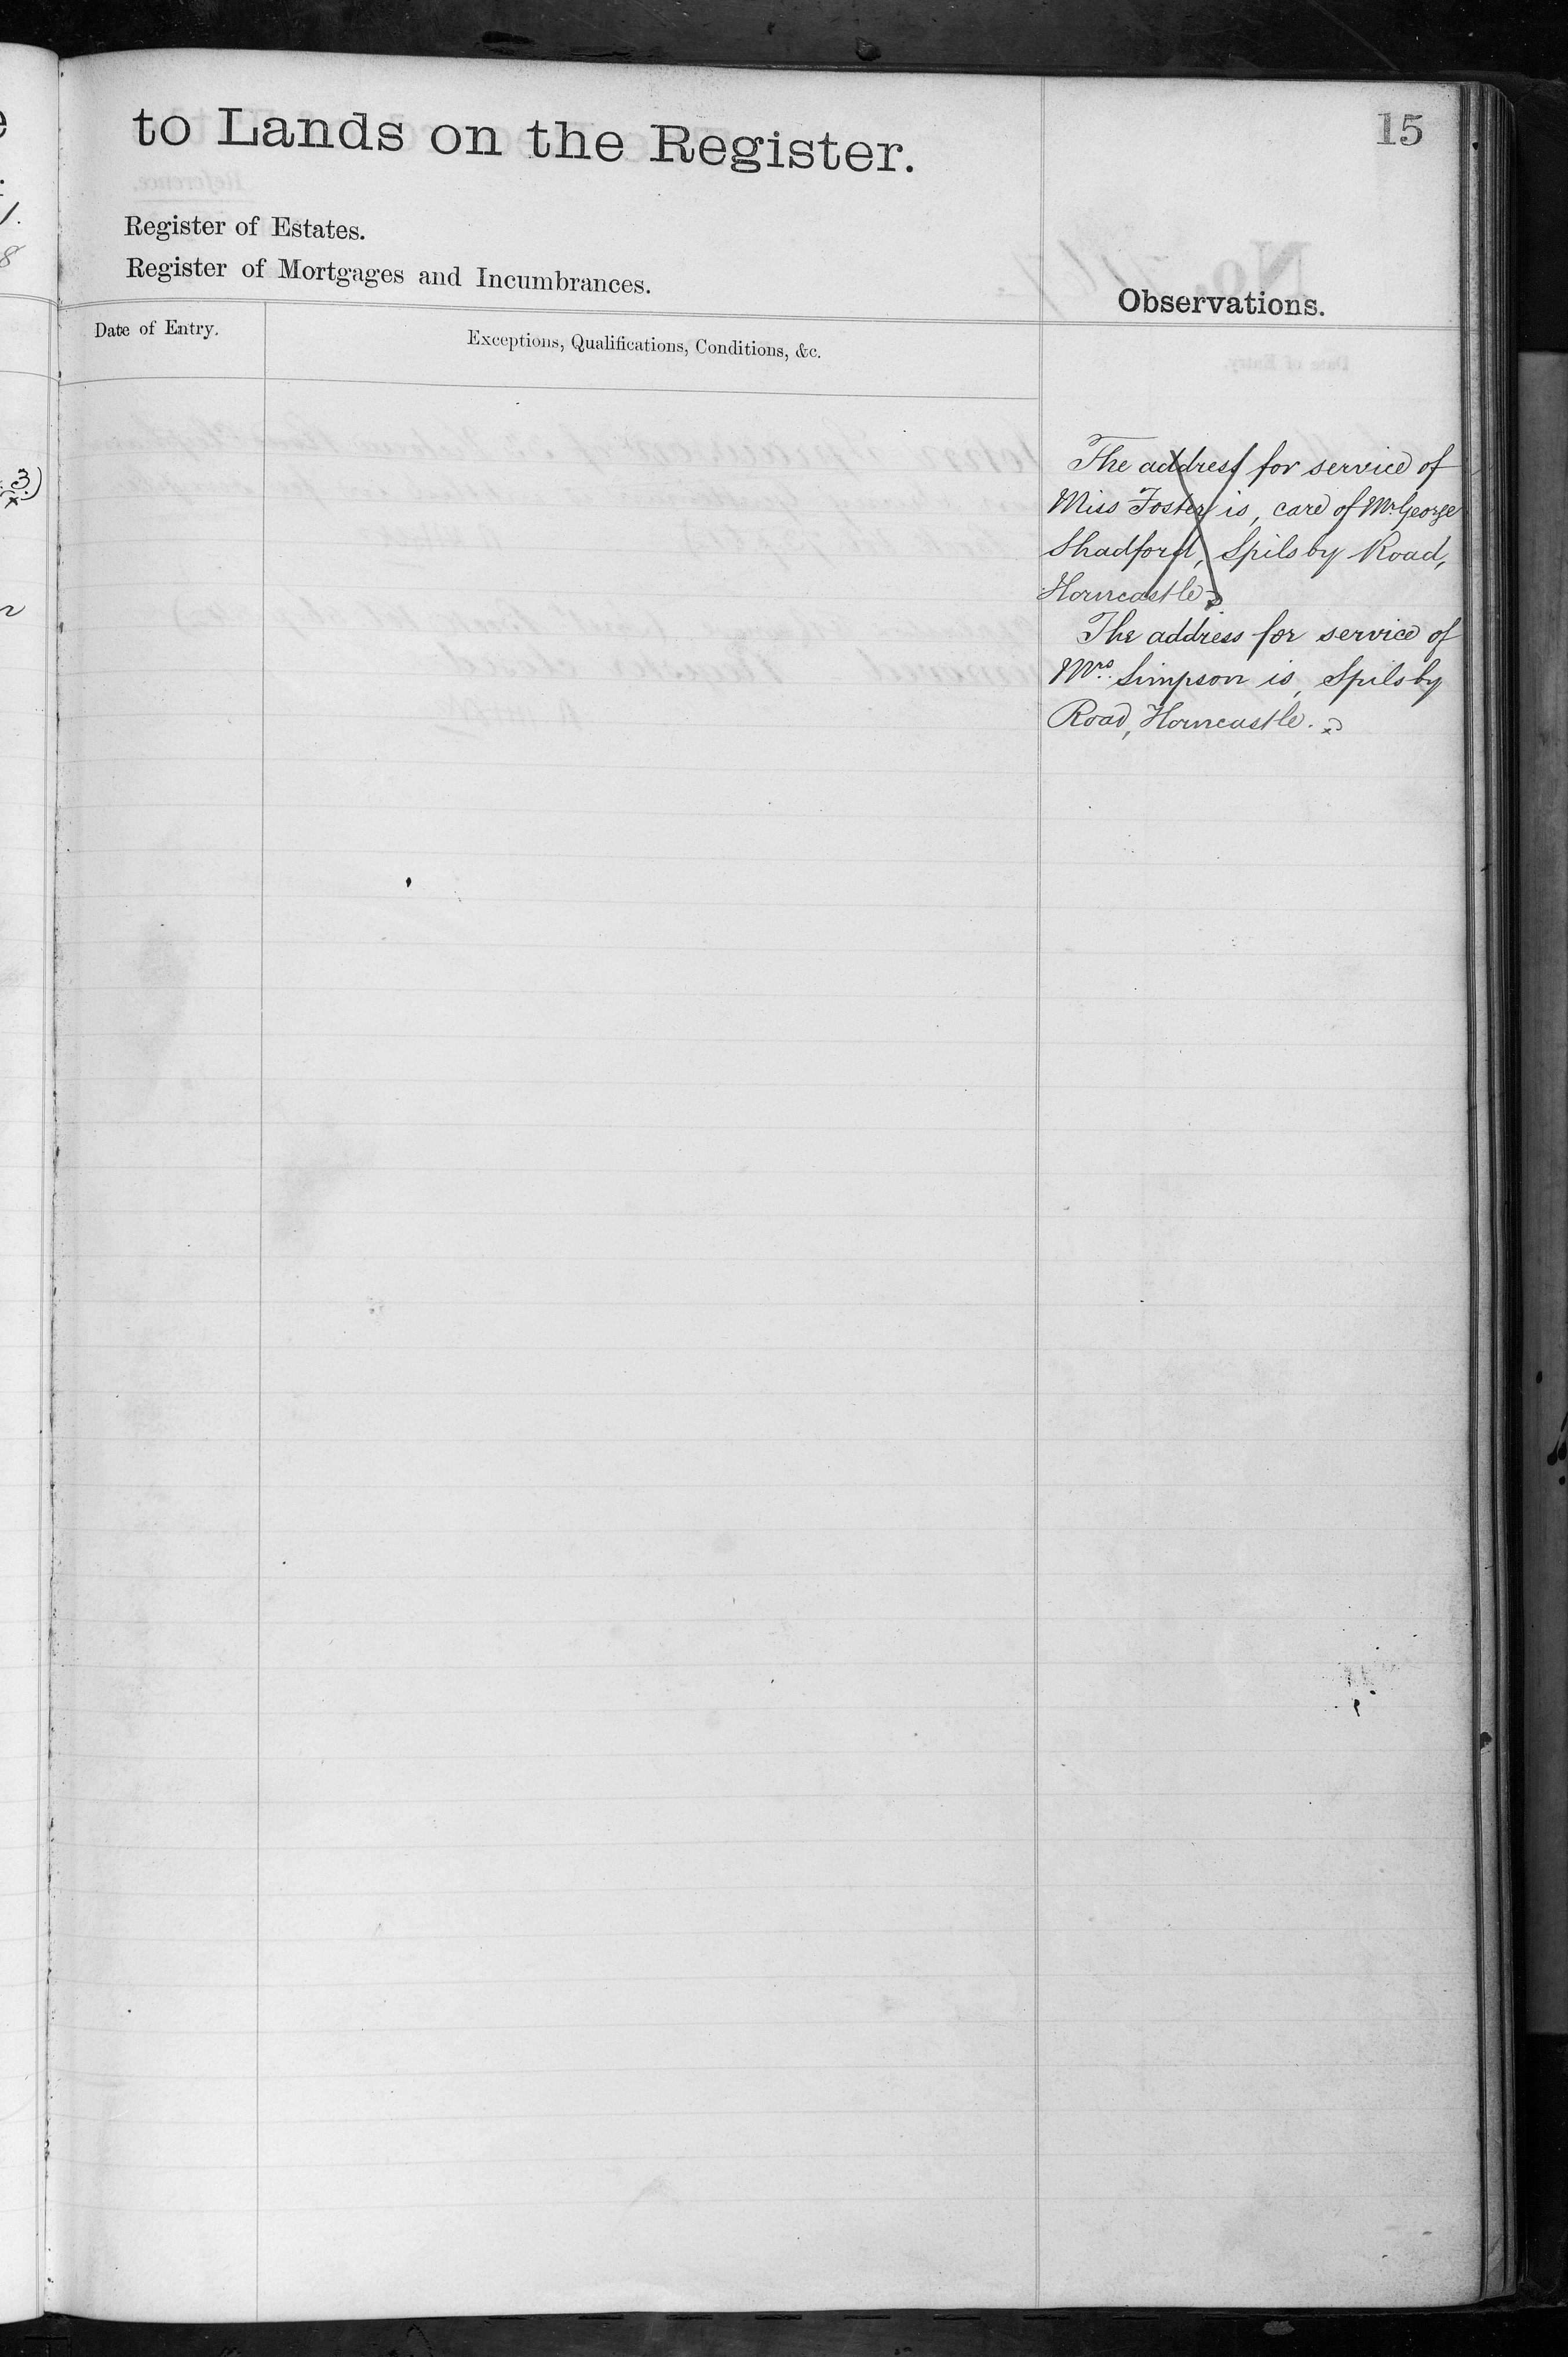 to Lands on the Register.
15
Register of Estates.
Register of Mortgages and Incumbrances.
Observations.
Date of Entry.
Exceptions, Qualifications, Conditions, &c.
The address for service of
Miss Foster is, care of Mr. George
Shadford, Spilsby Road,
Horncastle
The address for service of
Mrs. Simpson is, Spilsby
Road, Horncastle.